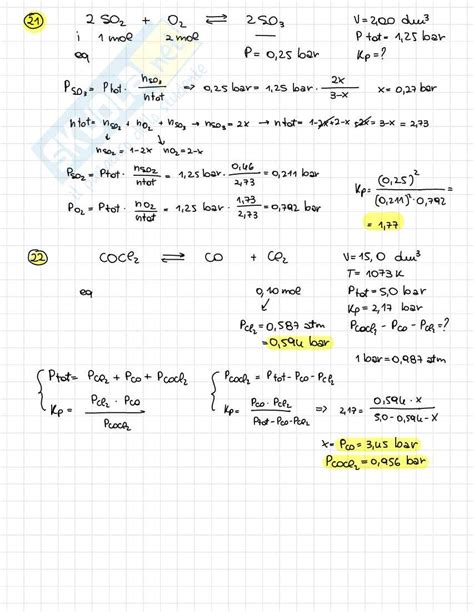 21 2 SO₂ + O₂ ⇌ 2SO₃ V = 2,00 dm³
i 1 mol 2 mol Ptot = 1,25 bar
eq P = 0,25 bar Kp = ?
P_SO₃ = Ptot · n_SO₃/ntot => 0,25 bar = 1,25 bar · 2x/3-x x = 0,27 bar
ntot = n_SO₂ + n_O₂ + n_SO₃ → n_SO₃ = 2x → ntot = 1-2x+2-x+2x = 3-x = 2,73
n_SO₂ = 1-2x n_O₂ = 2-x
P_SO₂ = Ptot · n_SO₂/ntot = 1,25 bar · 0,46/2,73 = 0,211 bar
Kp = (0,25)²/(0,211)² · 0,792 =
P_O₂ = Ptot · n_O₂/ntot = 1,25 bar · 1,73/2,73 = 0,792 bar
= 1,77
22 COCl₂ ⇌ CO + Cl₂ V = 15,0 dm³
T = 1073 K
eq 0,10 mol Ptot = 5,0 bar
Kp = 2,17 bar
P_Cl₂ = 0,587 atm P_COCl₂ - P_CO - P_Cl₂ = ?
= 0,594 bar
1 bar = 0,987 atm
Ptot = P_Cl₂ + P_CO + P_COCl₂ P_COCl₂ = Ptot - P_CO - P_Cl₂
Kp = P_Cl₂ · P_CO/P_COCl₂ Kp = P_CO · P_Cl₂/Ptot - P_CO - P_Cl₂ => 2,17 = 0,594 · x/5,0 - 0,594 - x
x = P_CO = 3,45 bar
P_COCl₂ = 0,956 bar